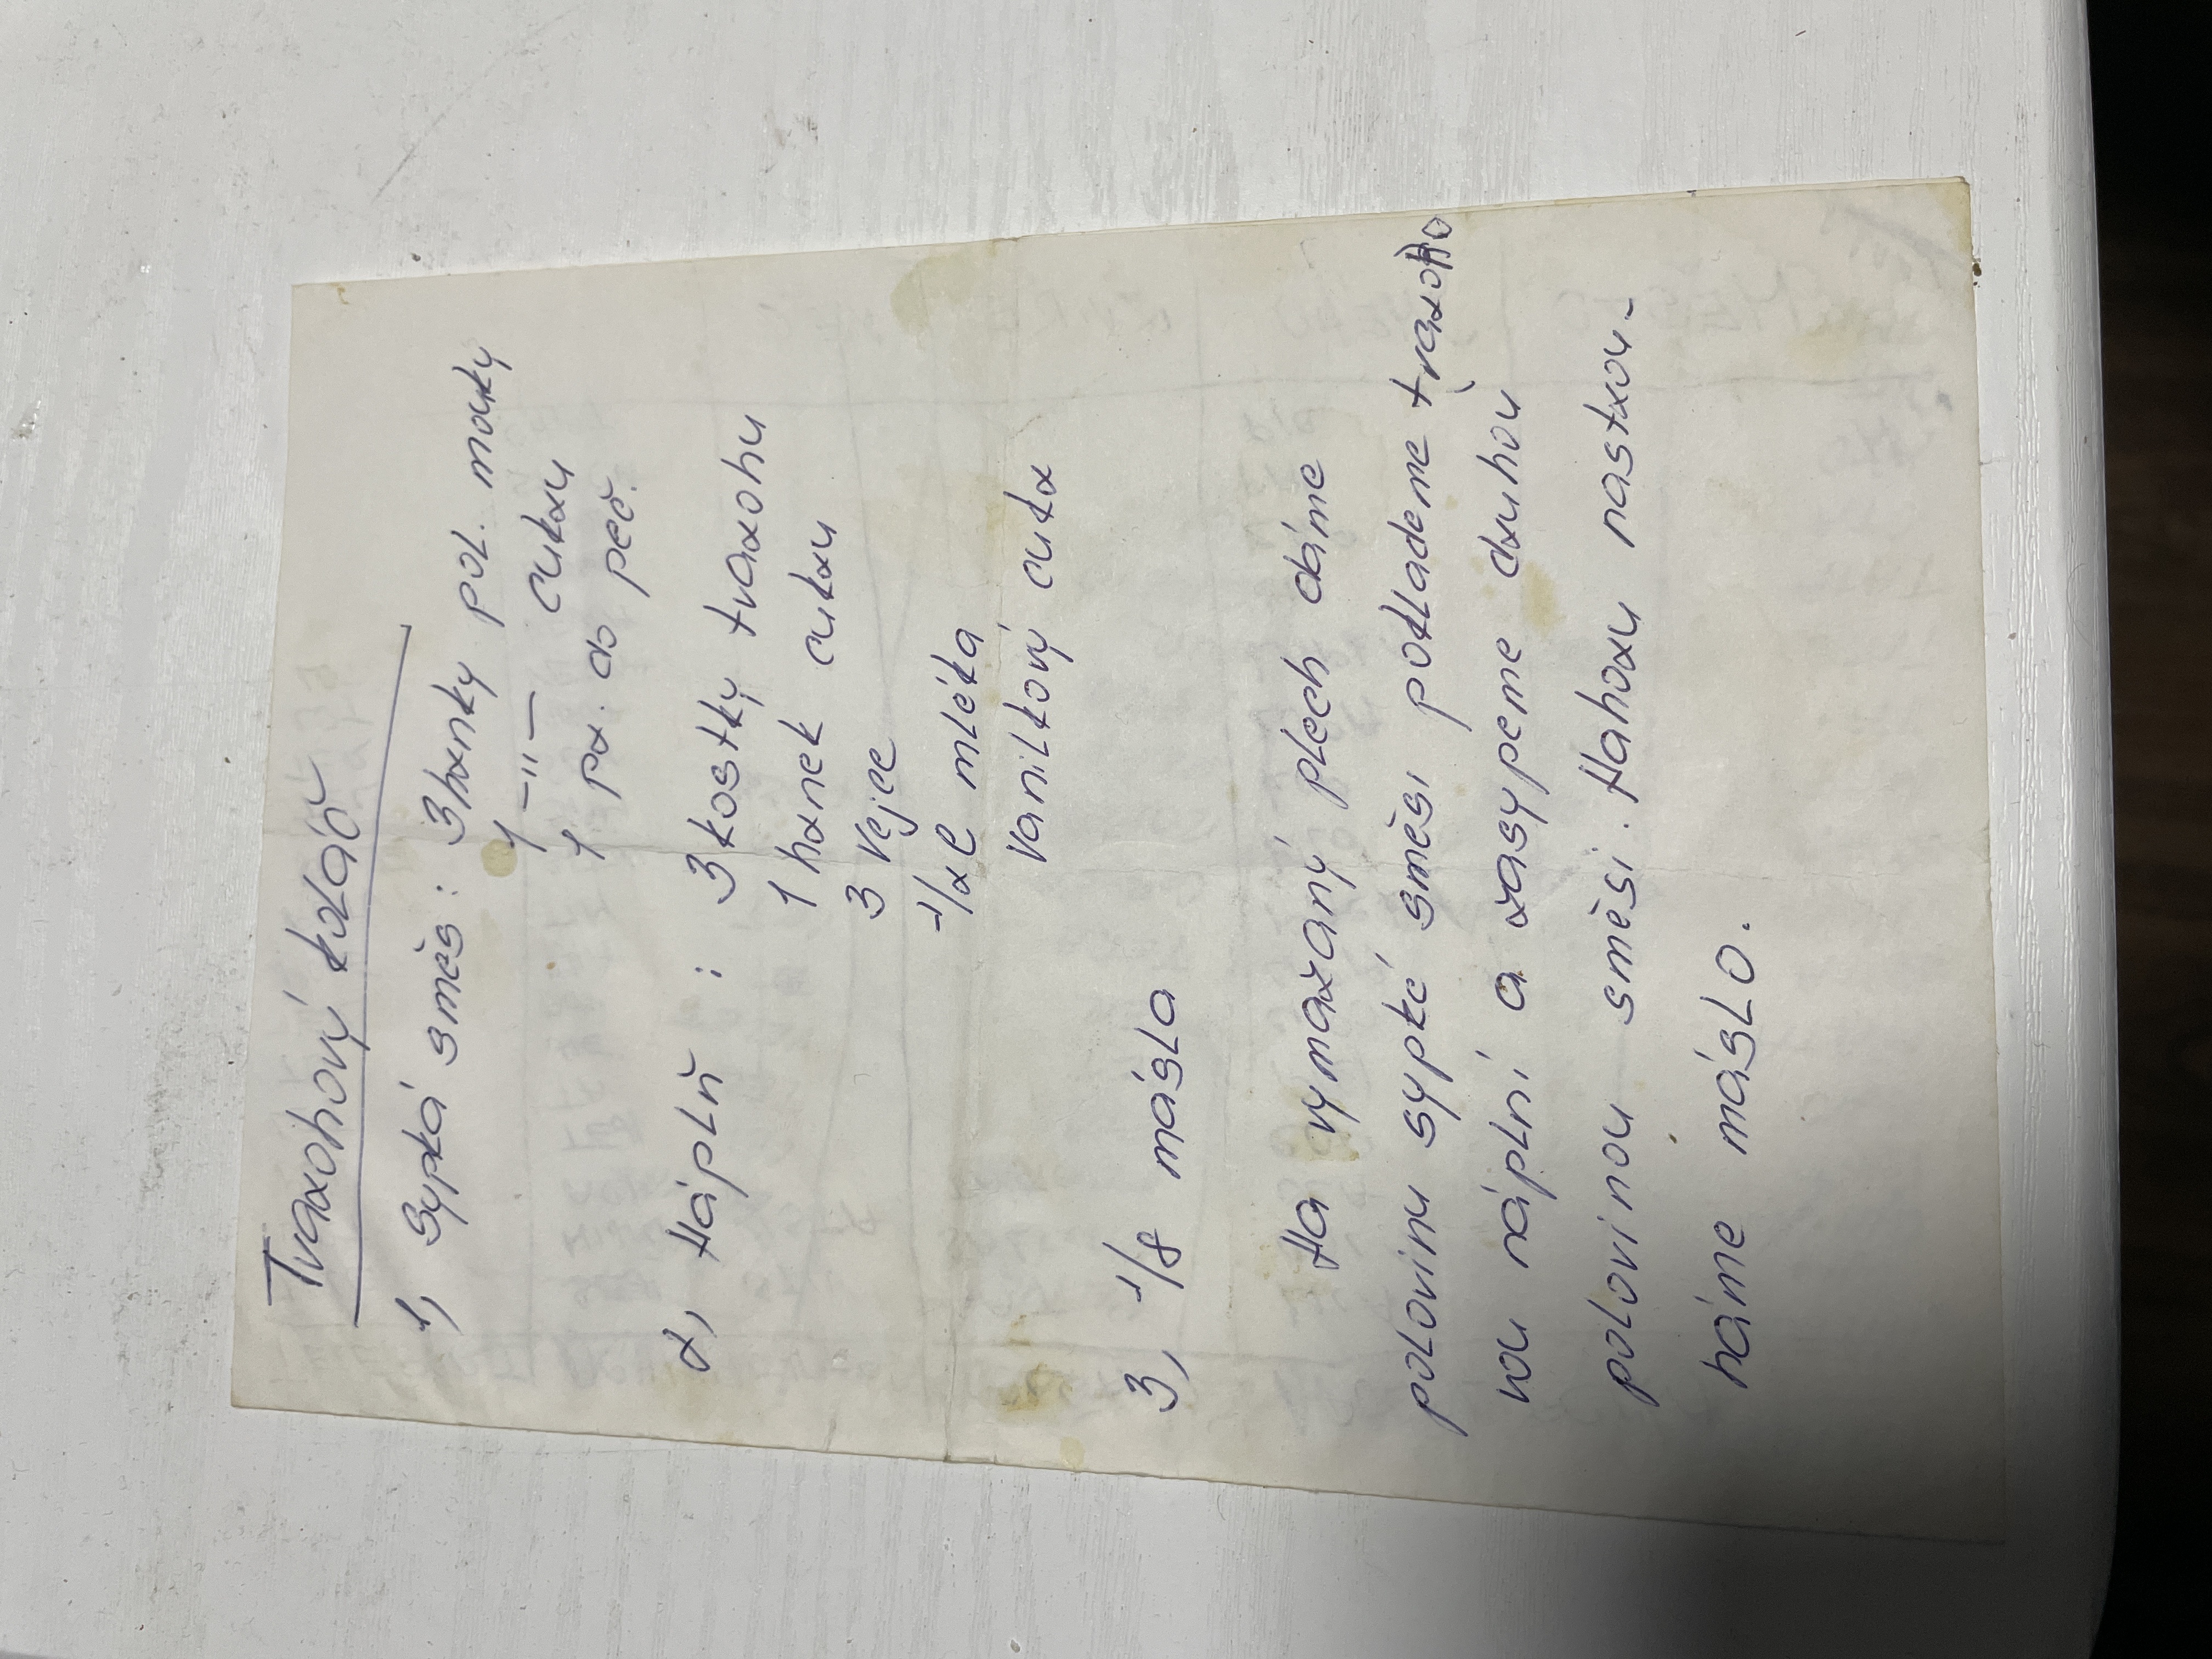 Tvarohový koláč
1, Sypká směs : 3 hrnky pol. mouky
1 -"- cukru
1 pr. do peč.
2, Náplň : 3 kostky tvarohu
1 hrnek cukru
3 vejce
1/2 l mléka
vanilkový cukr
3, 1/8 másla
Na vymazaný plech dáme
polovinu sypké směsi poklademe tvaroho
vou náplní a zasypeme druhou
polovinou směsi. Nahoru nastrou-
háme máslo.